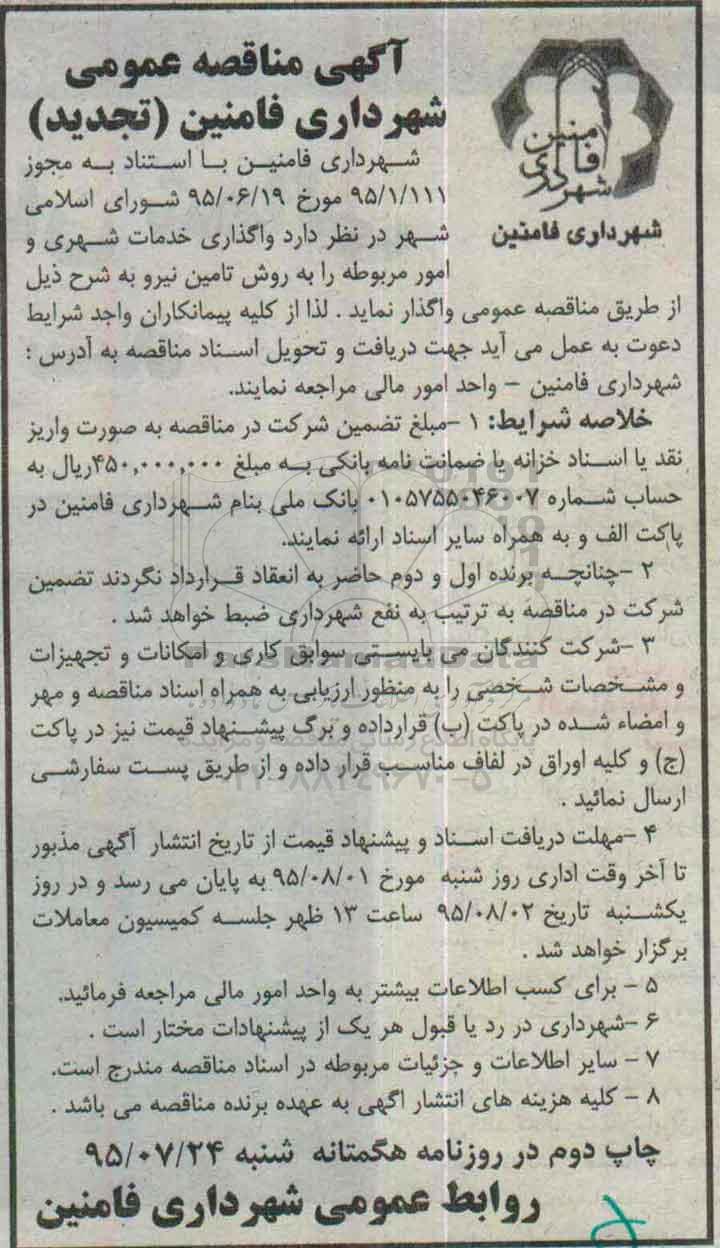 آگهی مناقصه عمومی
شهرداری فامنین (تجدید)
شهرداری فامنین
شهرداری فامنین
شهرداری فامنین با استناد به مجوز
۹۵/۱/۱۱۱ مورخ ۹۵/۰۶/۱۹ شورای اسلامی
شهر در نظر دارد واگذاری خدمات شهری و
امور مربوطه را به روش تامین نیرو به شرح ذیل
از طریق مناقصه عمومی واگذار نماید . لذا از کلیه پیمانکاران واجد شرایط
دعوت به عمل می آید جهت دریافت و تحویل اسناد مناقصه به آدرس :
شهرداری فامنین – واحد امور مالی مراجعه نمایند.
خلاصه شرایط: ۱ –مبلغ تضمین شرکت در مناقصه به صورت واریز
نقد یا اسناد خزانه یا ضمانت نامه بانکی به مبلغ ۴۵۰,۰۰۰,۰۰۰ریال به
حساب شماره ۰۱۰۵۷۵۵۰۴۶۰۰۷ بانک ملی بنام شهرداری فامنین در
پاکت الف و به همراه سایر اسناد ارائه نمایند.
۲ –چنانچه برنده اول و دوم حاضر به انعقاد قرارداد نگردند تضمین
شرکت در مناقصه به ترتیب به نفع شهرداری ضبط خواهد شد .
۳ –شرکت کنندگان می بایستی سوابق کاری و امکانات و تجهیزات
و مشخصات شخصی را به منظور ارزیابی به همراه اسناد مناقصه و مهر
و امضاء شده در پاکت (ب) قرارداده و برگ پیشنهاد قیمت نیز در پاکت
(ج) و کلیه اوراق در لفاف مناسب قرار داده و از طریق پست سفارشی
ارسال نمائید .
۴ –مهلت دریافت اسناد و پیشنهاد قیمت از تاریخ انتشار آگهی مذبور
تا آخر وقت اداری روز شنبه مورخ ۹۵/۰۸/۰۱ به پایان می رسد و در روز
یکشنبه تاریخ ۹۵/۰۸/۰۲ ساعت ۱۳ ظهر جلسه کمیسیون معاملات
برگزار خواهد شد .
۵ – برای کسب اطلاعات بیشتر به واحد امور مالی مراجعه فرمائید.
۶ –شهرداری در رد یا قبول هر یک از پیشنهادات مختار است .
۷ – سایر اطلاعات و جزئیات مربوطه در اسناد مناقصه مندرج است.
۸ – کلیه هزینه های انتشار اگهی به عهده برنده مناقصه می باشد .
چاپ دوم در روزنامه هگمتانه شنبه ۹۵/۰۷/۲۴
روابط عمومی شهرداری فامنین